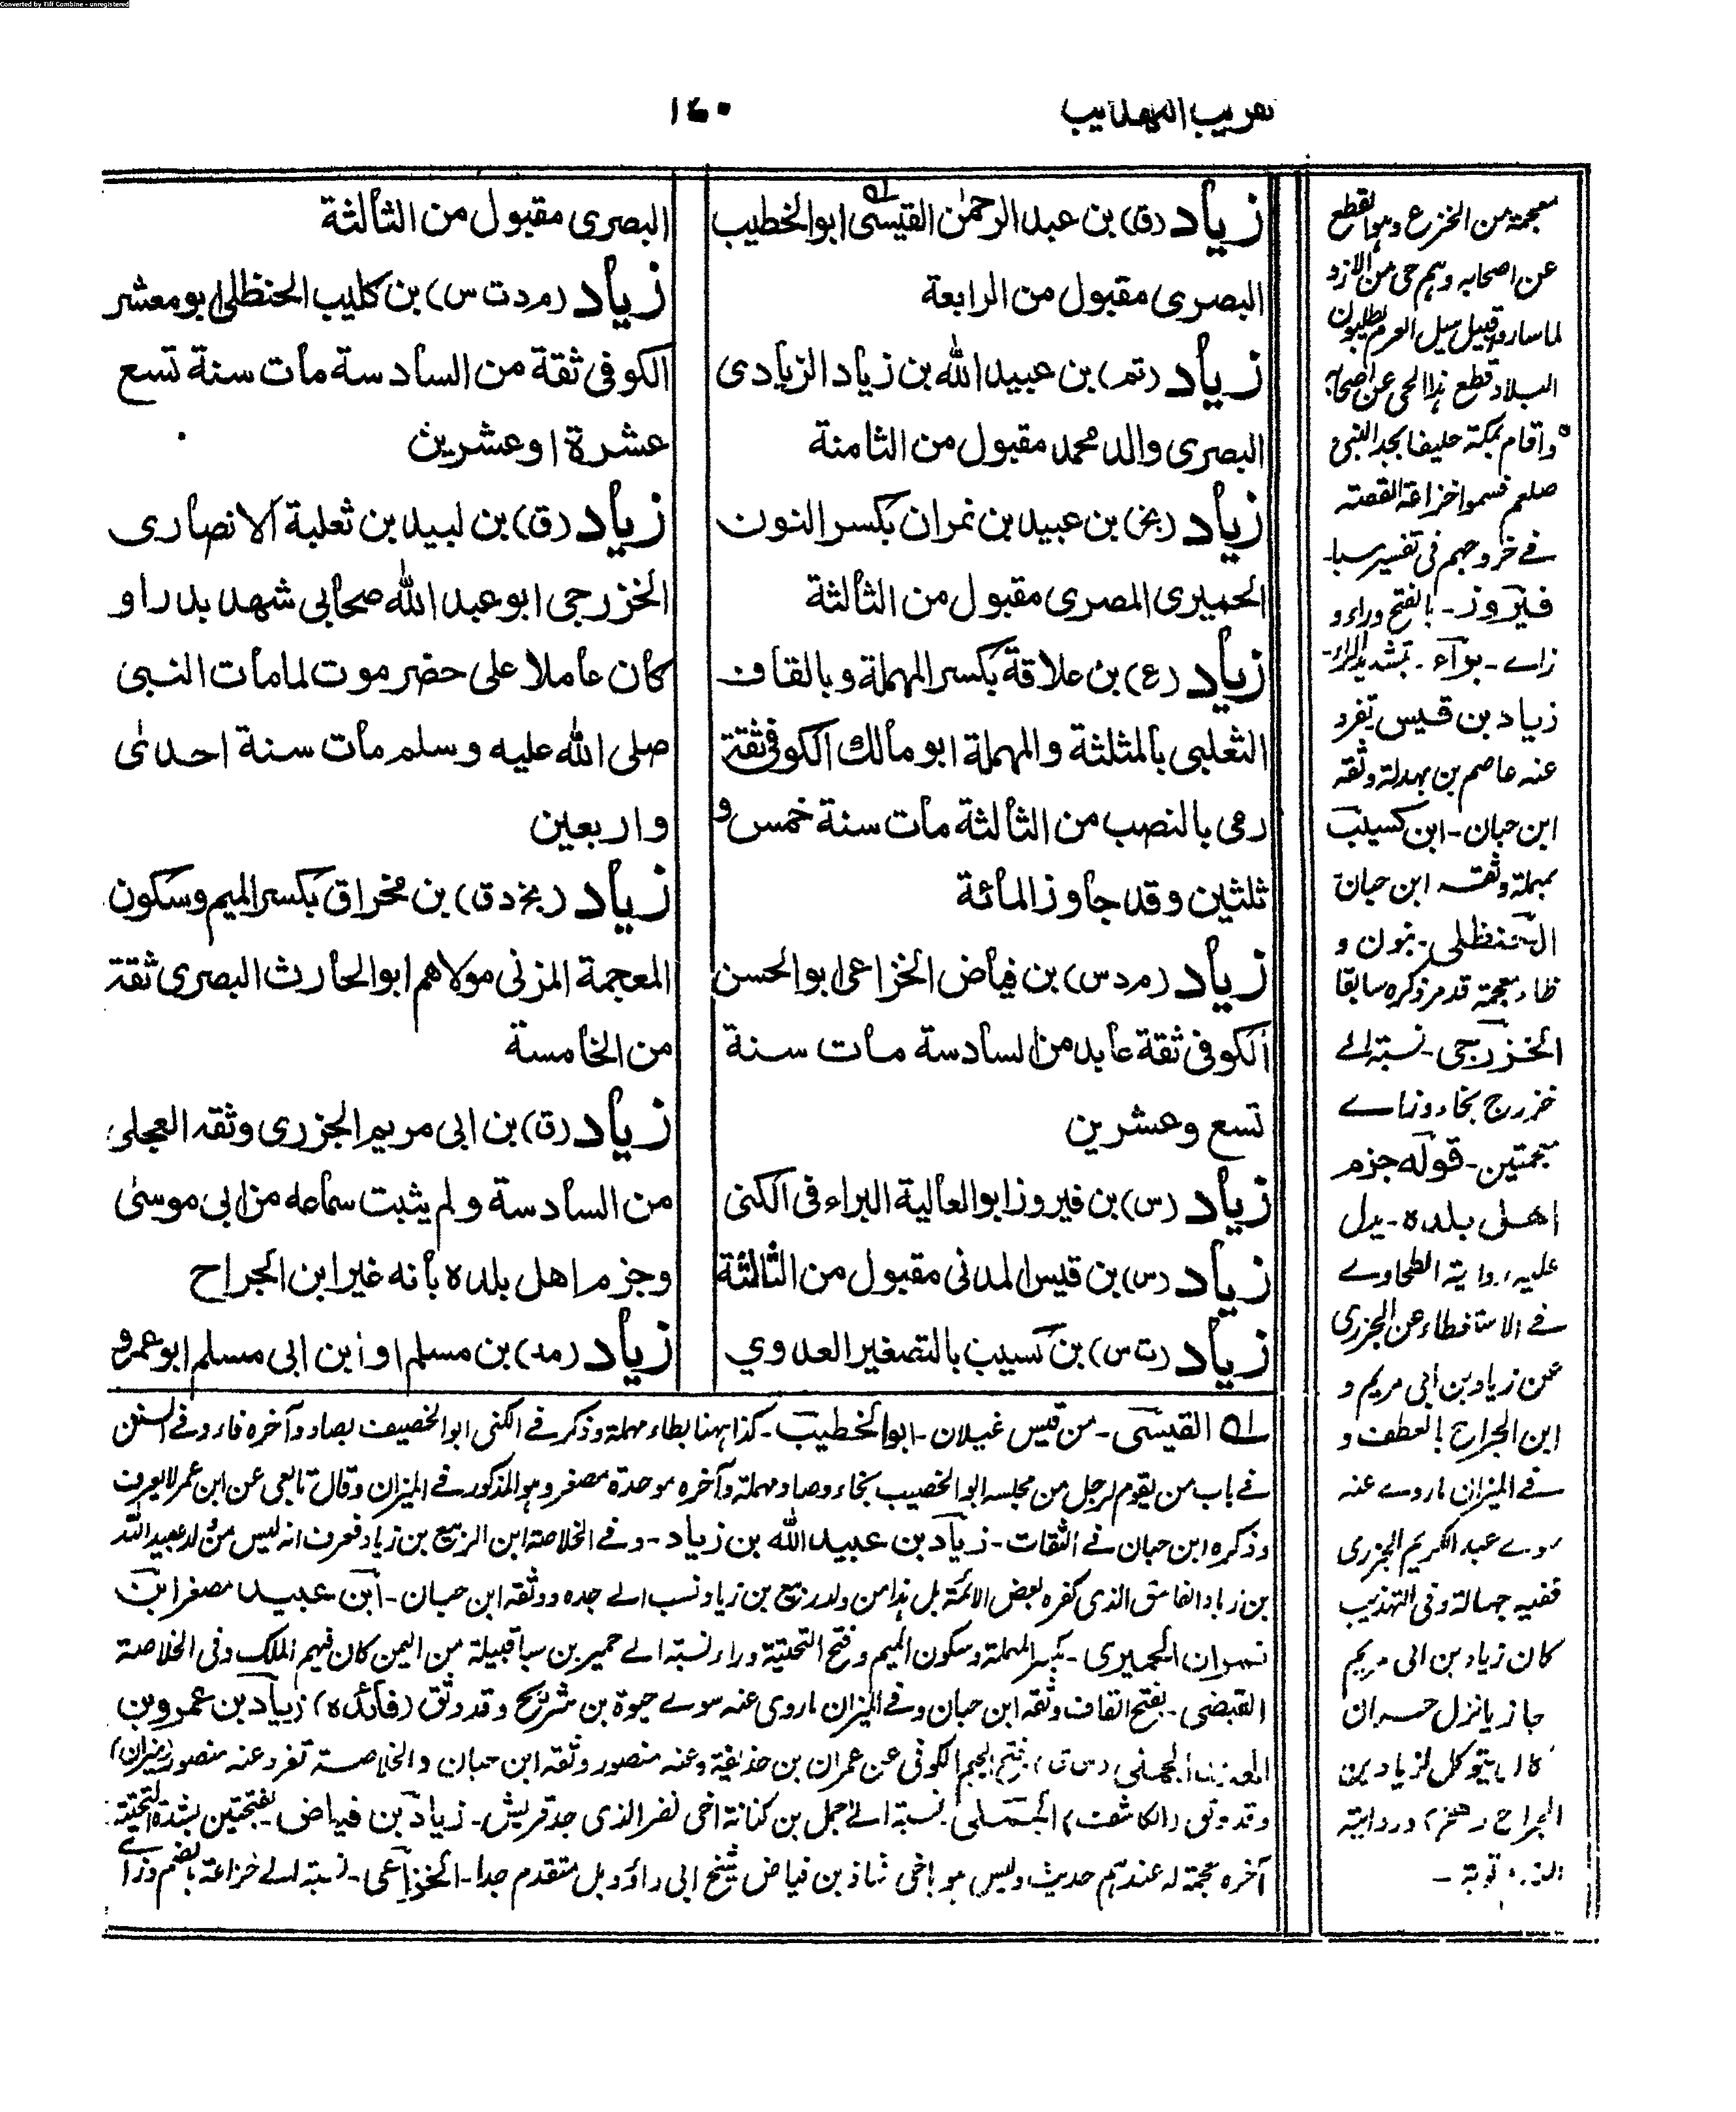 Converted by Tiff Combine - unregistered
تقريب التهذيب
١٤٠
زياد (ق) بن عبد الرحمٰن القيسى ابو الخطيب
البصرى مقبول من الرابعة
زياد (تم) بن عبيد الله بن زياد الزيادى
البصرى والد محمد مقبول من الثامنة
زياد (بخ) بن عبيد بن نمران بكسر النون
الحميرى المصرى مقبول من الثالثة
زياد (ع) بن علاقة بكسر المهملة وبالقاف
الثعلبى بالمثلثة والمهملة ابو مالك الكوفى ثقة
رمى بالنصب من الثالثة مات سنة خمس و
ثلثين وقد جاوز المائة
زياد (م د س) بن فياض الخزاعى ابو الحسن
الكوفى ثقة عابد من السادسة مات سنة
تسع وعشرين
زياد (س) بن فيروز ابو العالية البراء فى الكنى
زياد (س) بن قيس المدنى مقبول من الثالثة
زياد (ت س) بن كسيب بالتصغير العدوي
البصرى مقبول من الثالثة
زياد (م د ت س) بن كليب الحنظلى ابو معشر
الكوفى ثقة من السادسة مات سنة تسع
عشرة او عشرين
زياد (ق) بن لبيد بن ثعلبة الانصارى
الخزرجى ابو عبد الله صحابى شهد بدرا و
كان عاملا على حضرموت لما مات النبى
صلى الله عليه وسلم مات سنة احدى
واربعين
زياد (بخ د ق) بن مخراق بكسر الميم وسكون
المعجمة المزنى مولاهم ابو الحارث البصرى ثقة
من الخامسة
زياد (ق) بن ابى مريم الجزرى وثقه العجلى
من السادسة ولم يثبت سماعه من ابى موسىٰ
وجزم اهل بلده بأنه غير ابن الجراح
زياد (مد) بن مسلم او ابن ابى مسلم ابو عمرو
له القيسى - من قيس غيلان - ابو الخطيب - كذا ههنا بطاء مهملة وذكر فے الكنى ابو الخصيف بصاد وآخره فاء وفے السنن
فے باب من يقوم لرجل من مجلسه ابو الخصيب بخاء وصاد مهملة وآخره موحدة مصغر وهو المذكور فے الميزان وقال تابعى عن ابن عمر لا يعرف
وذكره ابن حبان فے الثقات - زياد بن عبيد الله بن زياد - وفے الخلاصة ابن الربيع بن زياد فعرف انه ليس من ولد عبيد الله
بن زياد الفاسق الذى كفره بعض الائمة بل هذا من ولد ربيع بن زياد نسب الے جده ووثقه ابن حبان - ابن عبيد مصغر ابن
نمران الحميرى - بكسر المهملة وسكون الميم وفتح التحتية وراء نسبة الے حمير بن سبا قبيلة من اليمن كان فيهم الملك وفى الخلاصة
القبضى - بفتح القاف وثقه ابن حبان وفے الميزان ما روى عنه سوے حيوة بن شريح وقد وثق (فائده) زياد بن عمرو بن
الجملى (س ق) بفتح الجيم الكوفى عن عمران بن حذيفة وعنه منصور وثقه ابن حبان والخلاصة تفرد عنه منصور (ميزان)
وقد وثق (الكاشف) الجملى نسبة الے جمل بن كنانة اخى نضر الذى جد قريش - زياد بن فياض - بفتحتين بشدة التحتية
آخره معجمة له عندهم حديث وليس هو باخى شاذ بن فياض شيخ ابى داؤد بل متقدم جدا - الخزاعى - نسبة الے خزاعة بالضم وزاے
معجمة من الخزع وهو القطع
عن اصحابه وهم حى من الازد
لما ساروا قبيل سيل العرم يطلبون
البلاد قطع هذا الحى عن اصحابه
واقام بمكة حليفا بجد النبى
صلعم فسموا خزاعة القصة
فے خروجهم فى تفسير سبا
فيروز - بالفتح وراء و
زاے - براء - بتشديد الراء -
زياد بن قيس تفرد
عنه عاصم بن بهدلة وثقه
ابن حبان - ابن كسيب
بمهملة وثقه ابن حبان
الحنظلى - بنون و
ظاء معجمة قد مر ذكره سابقا
الخزرجى - نسبة الے
خزرج بخاء وزاے
معجمتين - قوله جزم
اهل بلده - يدل
عليه رواية الطحاوے
فے الاستقطاء عن الجزرى
عن زياد بن ابى مريم و
ابن الجراح بالعطف و
فے الميزان ما روے عنه
سوے عبد الكريم الجزرى
ففيه جهالة وفى التهذيب
كان زياد بن ابى مريم
حجازيا نزل حران
يتوكل لزياد بن
الجراح ورواية
توبة -